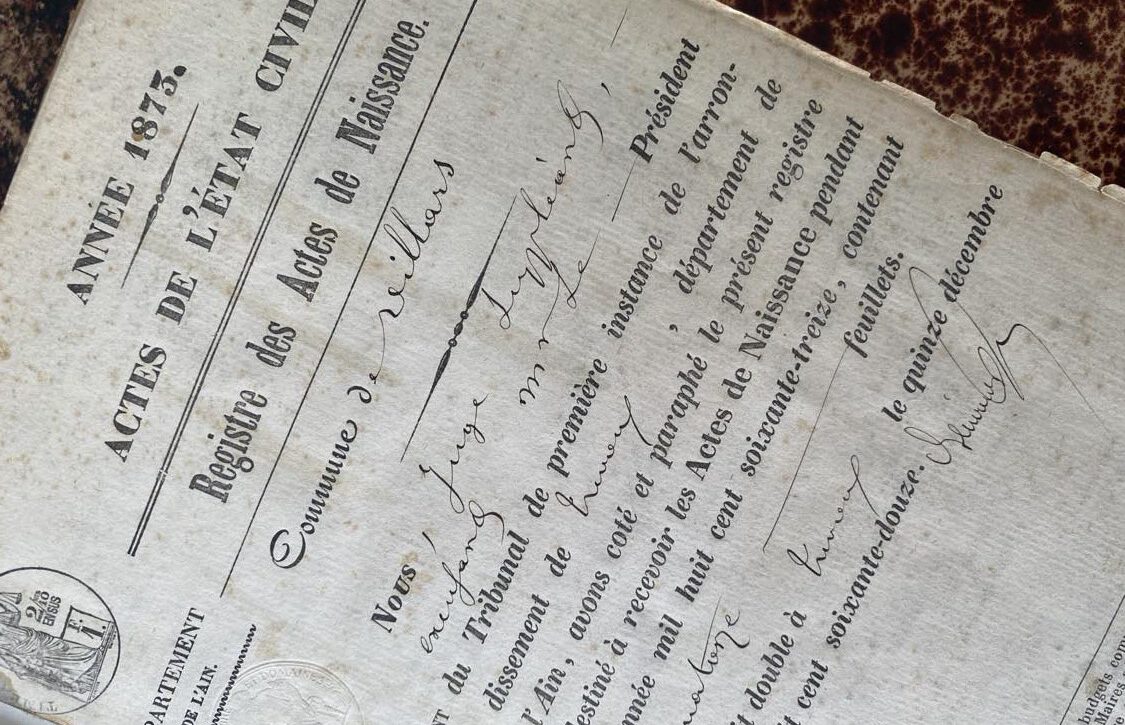 ANNÉE 1873.
ACTES DE L'ÉTAT CIVIL
Registre des Actes de Naissance.
Commune de Villars
Nous Juge Suppléant,
mr Le Président
du Tribunal de première instance de l'arron-
dissement de Trévoux, département de
l'Ain, avons coté et paraphé le présent registre
destiné à recevoir les Actes de Naissance pendant
année mil huit cent soixante-treize, contenant
quatorze feuillets.
t double à Trévoux le quinze décembre
t cent soixante-douze.
PARTEMENT
DE L'AIN.
2/10
EN SUS
1F.
budgets com